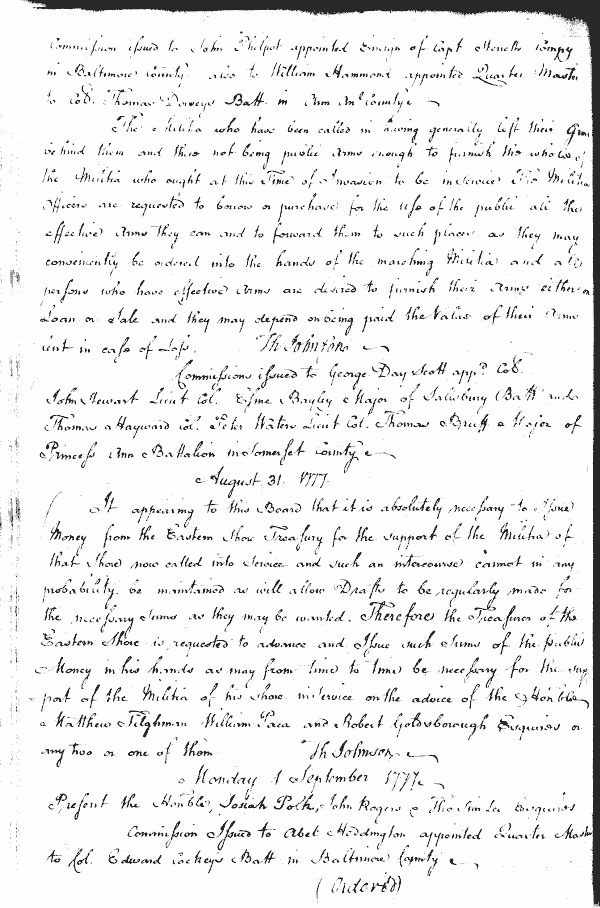 Commission issued to John Philpot appointed Ensign of Capt Sterett's Compy
in Baltimore County. also to William Hammond appointed Quarter Master
to Col. Thomas Dorseys Batt. in Ann Arl County
The Militia who have been called in having generally left their Guns
behind them and there not being public Arms enough to furnish the whole of
the Militia who ought at this Time of Invasion to be in service The Militia
Officers are requested to borrow or purchase for the Use of the public all the
effective Arms they can and to forward them to such places as they may
conveniently be ordered into the hands of the marching Militia and all
persons who have effective Arms are desired to furnish their Arms either on
Loan or Sale and they may depend on being paid the Value of their Arms
lent in case of Loss. Th Johnson
Commissions issued to George Day Scott appd. Col.
John Stewart Lieut Col. Esme Bayley Major of Salisbury Batt and
Thomas Hayward Col. Peter Waters Lieut Col. Thomas Bruff Major of
Princess Ann Battalion in Somerset County
August 31 1777
It appearing to this Board that it is absolutely necessary to Issue
Money from the Eastern Shore Treasury for the support of the Militia of
that Shore now called into Service and such an intercourse cannot in any
probability be maintained as will allow Drafts to be regularly made for
the necessary Sums as they may be wanted. Therefore the Treasurer of the
Eastern Shore is requested to advance and Issue such Sums of the public
Money in his hands as may from time to time be necessary for the sup
port of the Militia of his shore in Service on the advice of the Honble
Matthew Tilghman William Paca and Robert Goldsborough Esquires or
any two or one of them Th Johnson
Monday 1 September 1777
Present the Honble, Josiah Polk, John Rogers & Tho Sim Lee Esquires
Commission Issued to Abel Heddington appointed Quarter Master
to Col. Edward Cockeys Batt in Baltimore County
(Ordered)